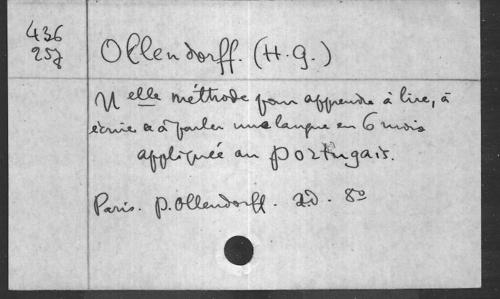 436
257
Ollendorff. (H. G.)
Nelle méthode pour apprendre à lire, à
écrire & à parler une langue en 6 mois
appliquée au portugais.
Paris. P. Ollendorff. s.d. 8º